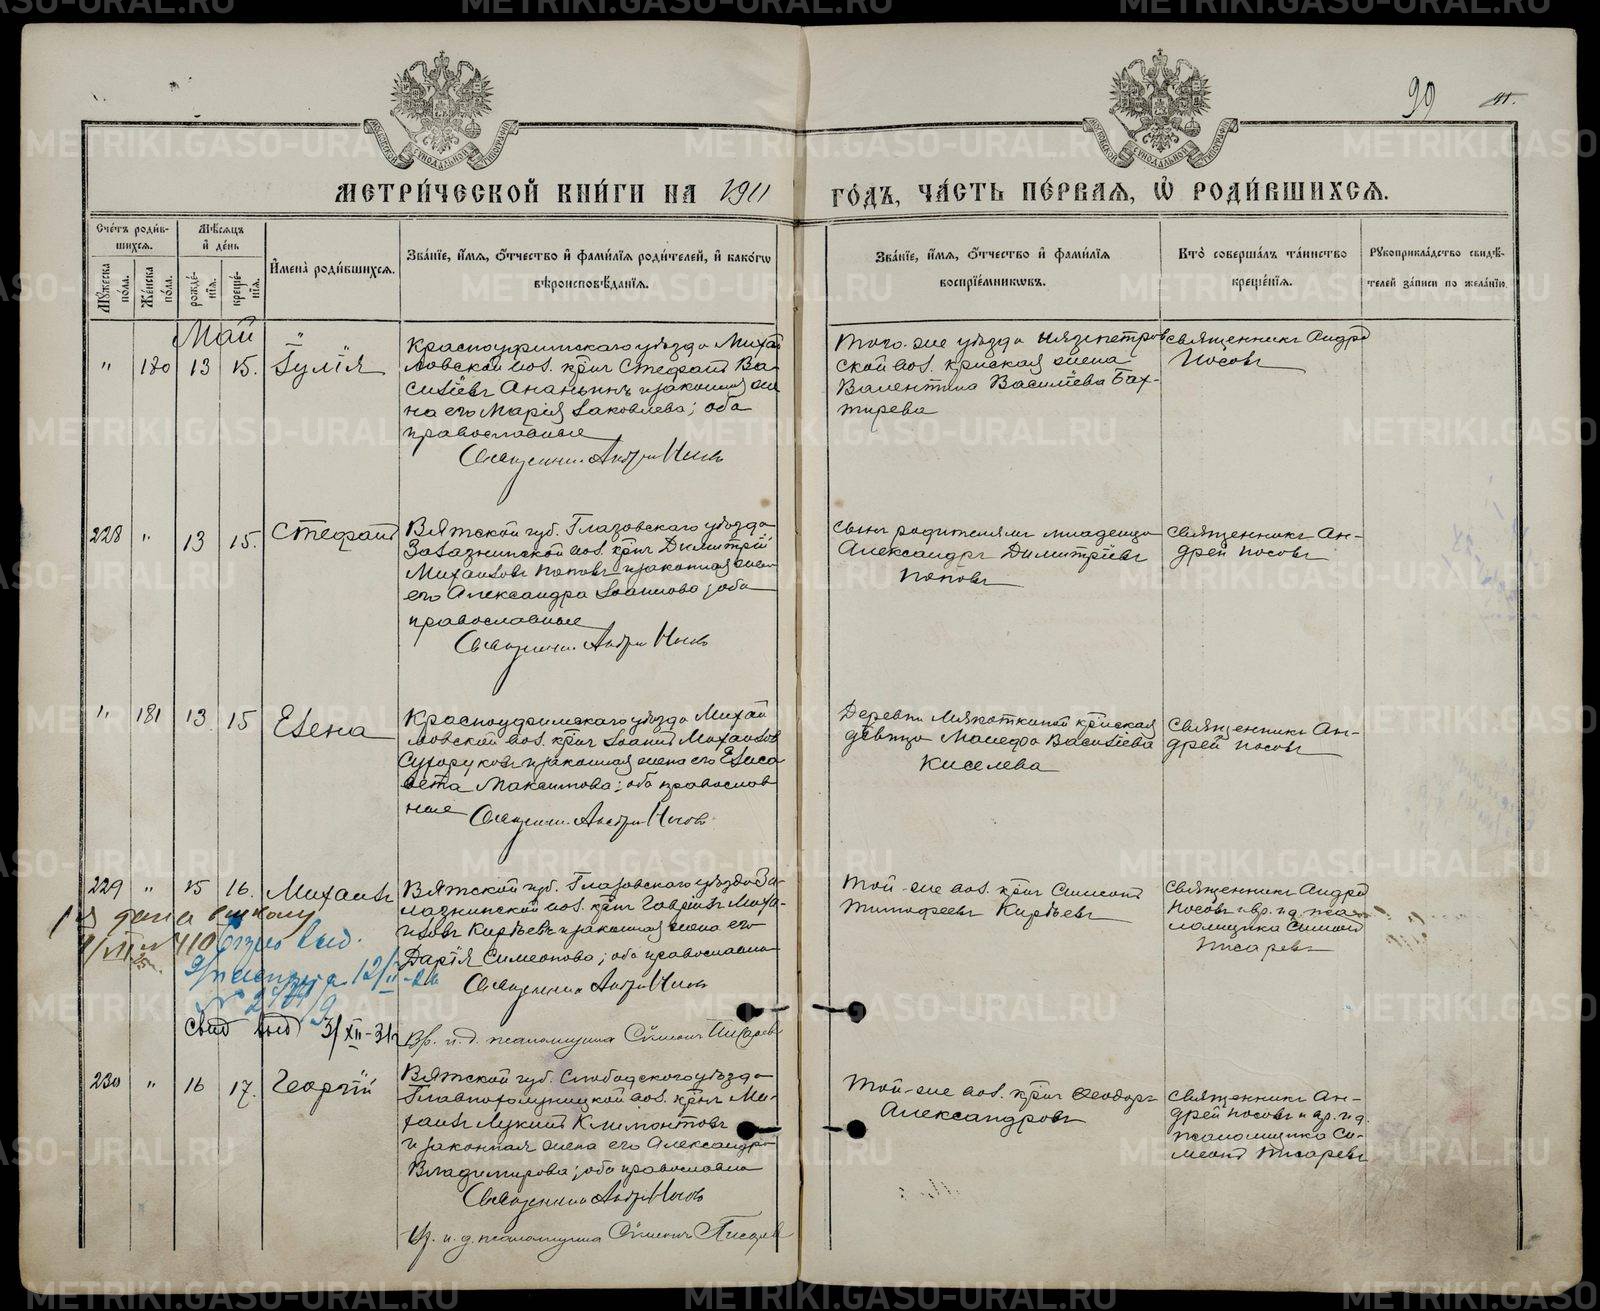 99
МЕТРИ́ЧЕСКОЙ КНИ́ГИ НА 1911 ГО́ДЪ, ЧА́СТЬ ПЕ́РВАЯ, Ѡ҆ РОДИ́ВШИХСЯ.
Сче́тъ роди́вшихся.
Му́жеска по́ла.
Же́нска по́ла.
Мѣ́сяцъ и҆ де́нь
рожде́нїя.
креще́нїя.
И҆мена̀ роди́вшихся.
Зва́нїе, и҆́мя, ѻ҆́тчество и҆ фами́лїя роди́телей, и҆ како́гѡ
вѣроисповѣ́данїя.
Зва́нїе, и҆́мя, ѻ҆́тчество и҆ фами́лїя
воспрїе́мникѡвъ.
Кто̀ соверша́лъ та́инство
креще́нїя.
Рꙋкоприкла́дство свидѣ́-
телей за́писи по жела́нїю.
Май
" 180 13 15. Іулія
Красноуфимскаго уѣзда Михай
ловской вол. кр-нъ Стефанъ Ва-
силіевъ Ананьинъ и законная же
на его Марія Іаковлева; оба
православные
Священникъ Андрей Носовъ
Того-же уѣзда Нязепетров
ской вол. кр-нская жена
Валентина Василіева Бах-
тирева
Священникъ Андрей
Носовъ
228 " 13 15. Стефанъ
Вятской губ. Глазовскаго уѣзда
Залазнинской вол. кр-нъ Димитрій
Михаиловъ Поповъ и законная жена
его Александра Іоаннова; оба
православные
Священникъ Андрей Носовъ
Сынъ родителямъ младенца
Александръ Димитріевъ
Поповъ
Священникъ Ан-
дрей Носовъ
" 181 13 15 Елена
Красноуфимскаго уѣзда Михай
ловской вол. кр-нъ Іоаннъ Михаиловъ
Сухоруковъ и законная жена его Елиса
вета Максимова; оба православ
ные Священникъ Андрей Носовъ
Деревни кр-нская
дѣвица Василіева
Киселева
Священникъ Ан-
дрей Носовъ
229 " 15 16. Михаилъ
Вятской губ. Глазовскаго уѣзда За-
лазнинской вол. кр-нъ Гавріилъ Миха-
иловъ Кирѣевъ и законная жена его
Дарія Симеонова; оба православные
Священникъ Андрей Носовъ
Вр. и.д. псаломщика Сѵмеонъ Писаревъ
Той-же вол. кр-нъ Симеонъ
Тимофеевъ Кирѣевъ
Священникъ Андрей
Носовъ и вр. и.д. пса-
ломщика Симеонъ
Писаревъ
выд.
12/II-26
свид выд 3/XII-31г
230 " 16 17. Георгій
Вятской губ. Слободскаго уѣзда
вол. кр-нъ Ми-
хаилъ Лукинъ Климонтовъ
и законная жена его Александра
Владимирова; оба православные
Священникъ Андрей Носовъ
Вр. и.д. псаломщика Сѵмеонъ Писаревъ
Той-же вол. кр-нъ Ѳеодоръ
Александровъ
Священникъ Ан-
дрей Носовъ и вр. и.д.
псаломщика Си-
меонъ Писаревъ
METRIKI.GASO-URAL.RU